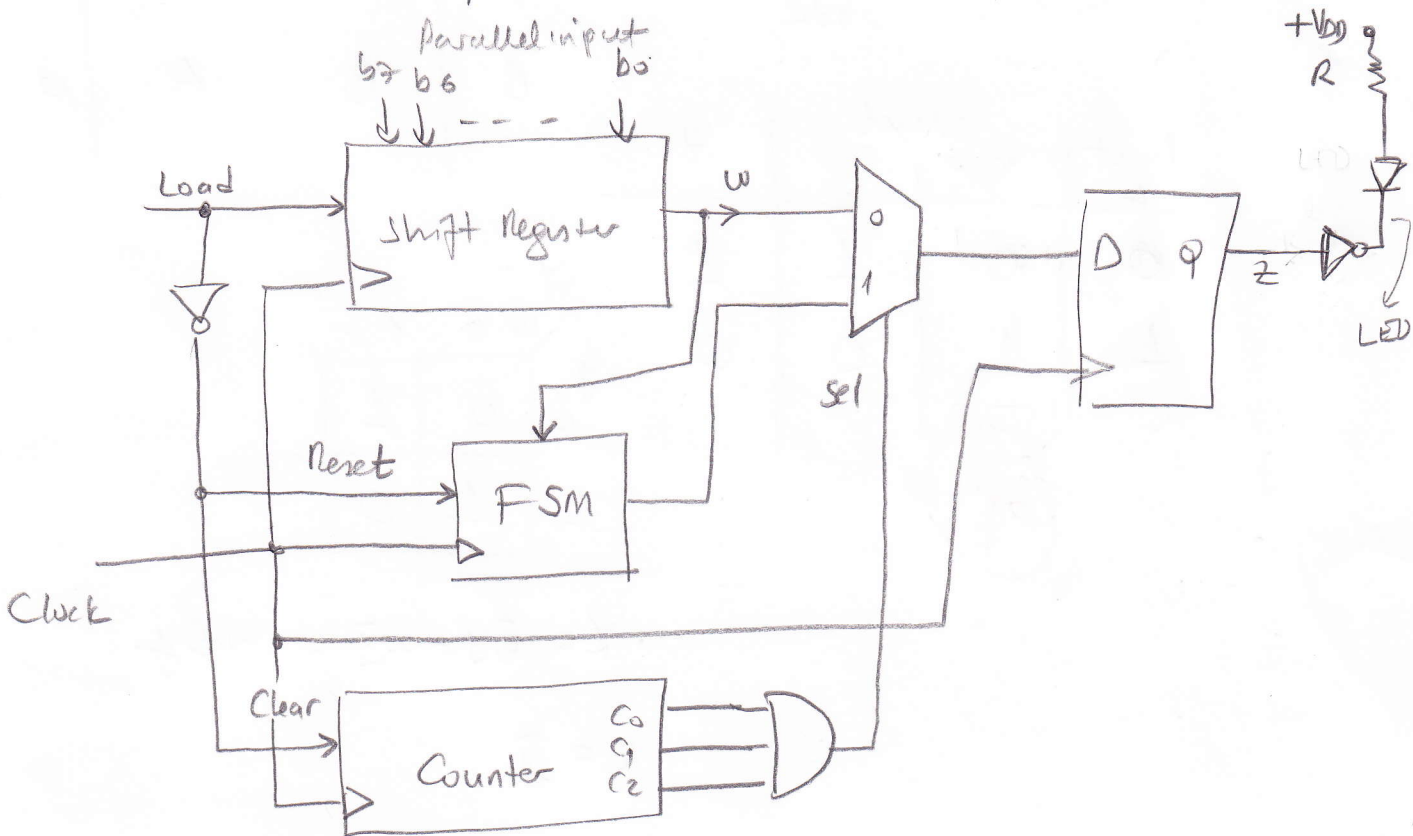 Parallel input
b7 b6 b0
+VDD
R
Load
w
Shift Register
0
1
D Q
Z
LED
LED
sel
Reset
FSM
Clock
Clear
Counter
C0
C1
C2